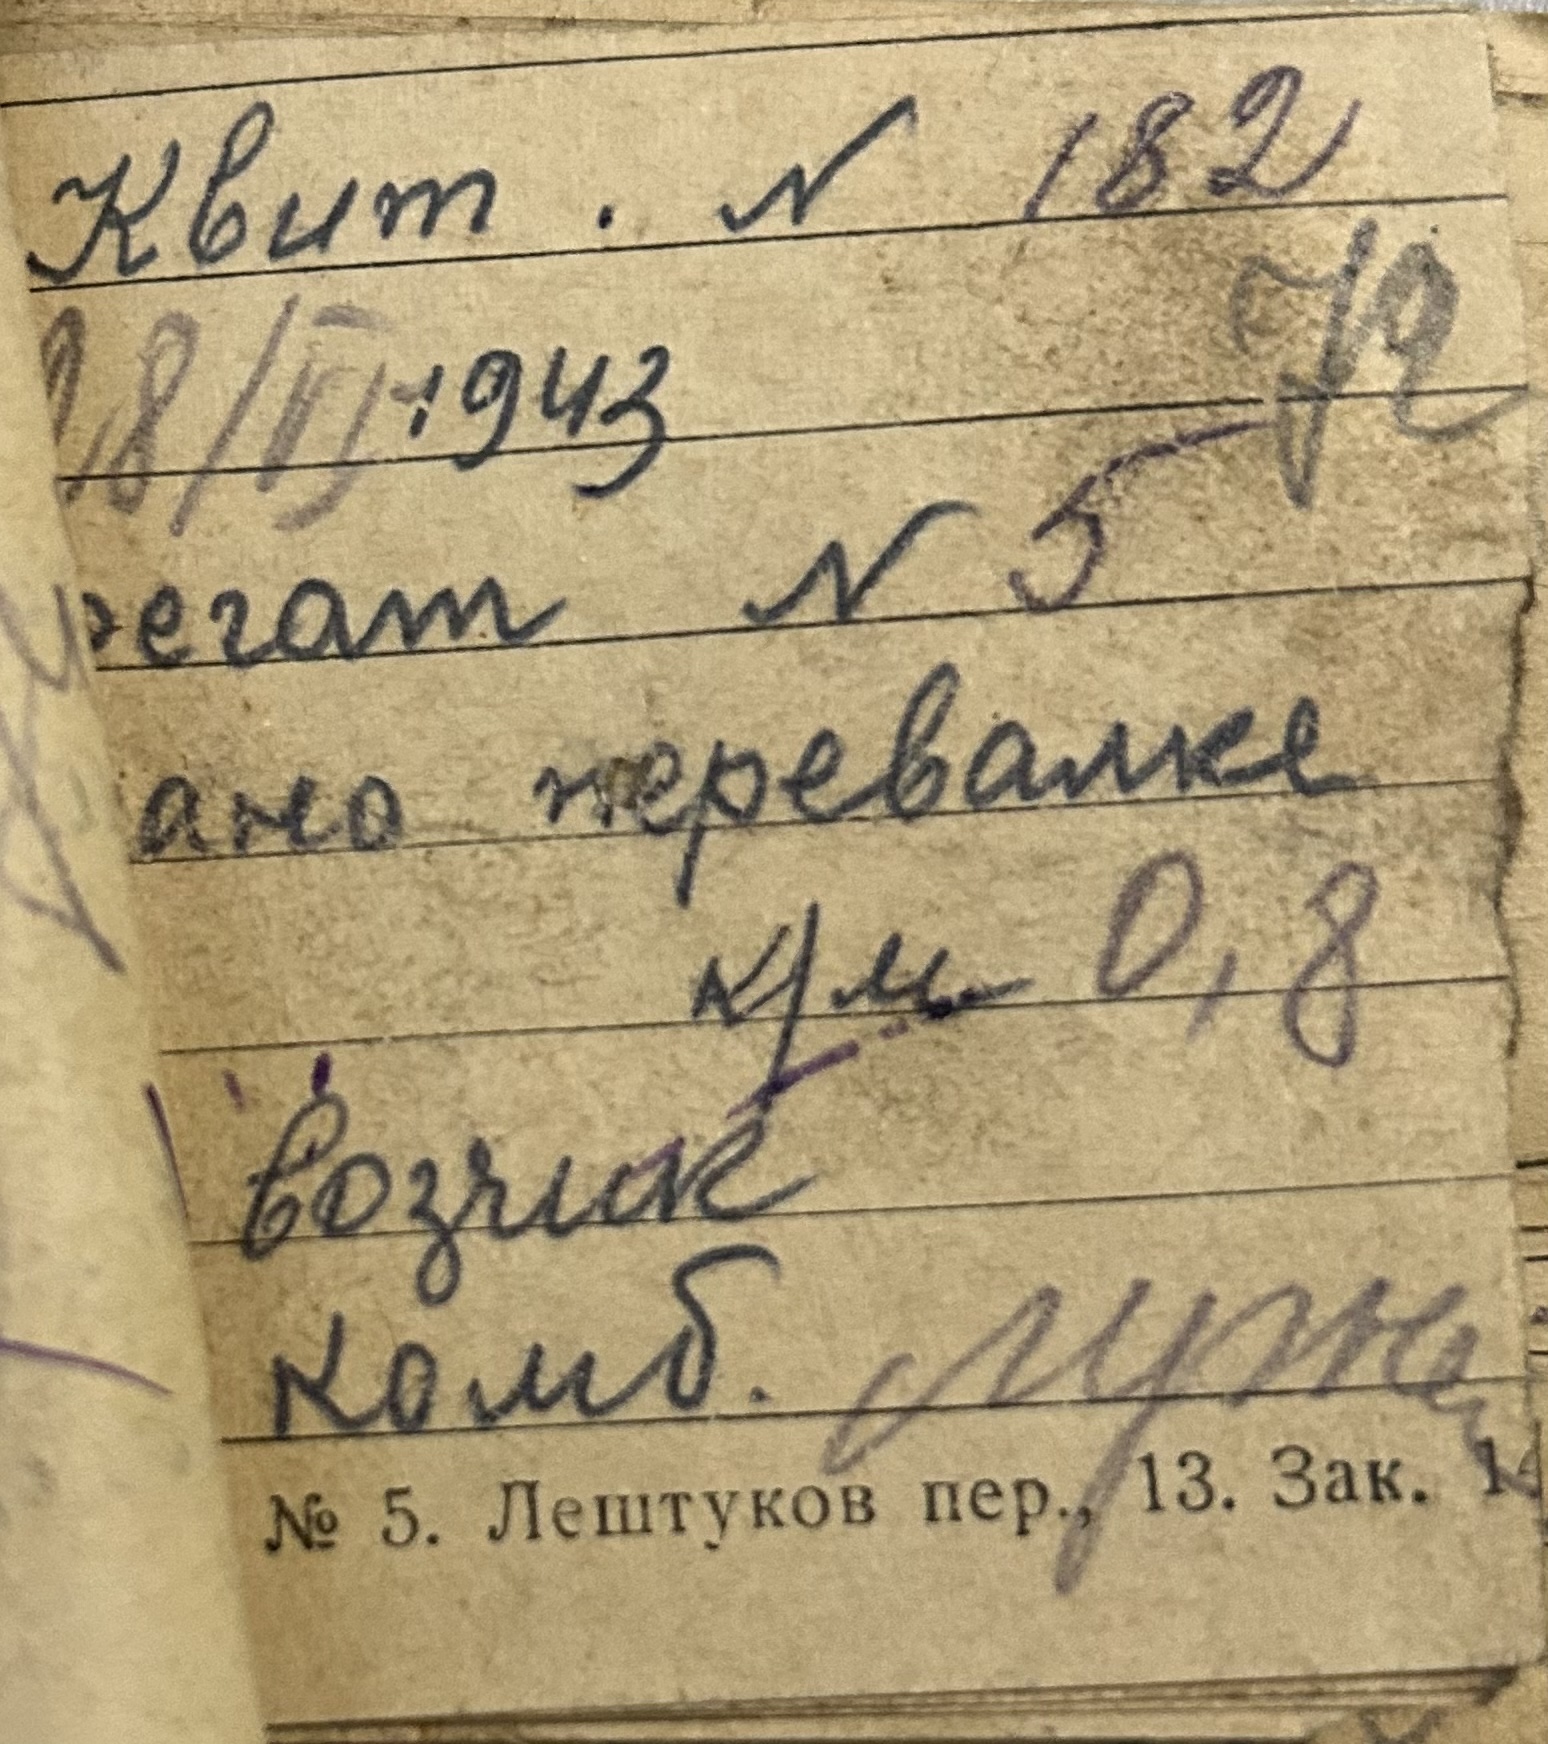 Квит. N 182
18/VI 1943
регат N 5
ано перевалке
к/м 0,8
Возчик
Комб.
№ 5. Лештуков пер., 13. Зак. 1